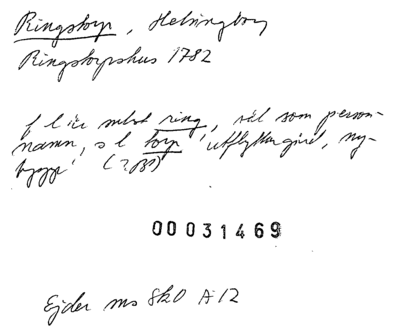 Ringstorp, Helsingborg
Ringstorpshus 1782
f l är subst ring, väl som person-
namn, s l torp 'utflyttargård, ny-
bygge'
00031469
Ejder ms Sk0 A 12